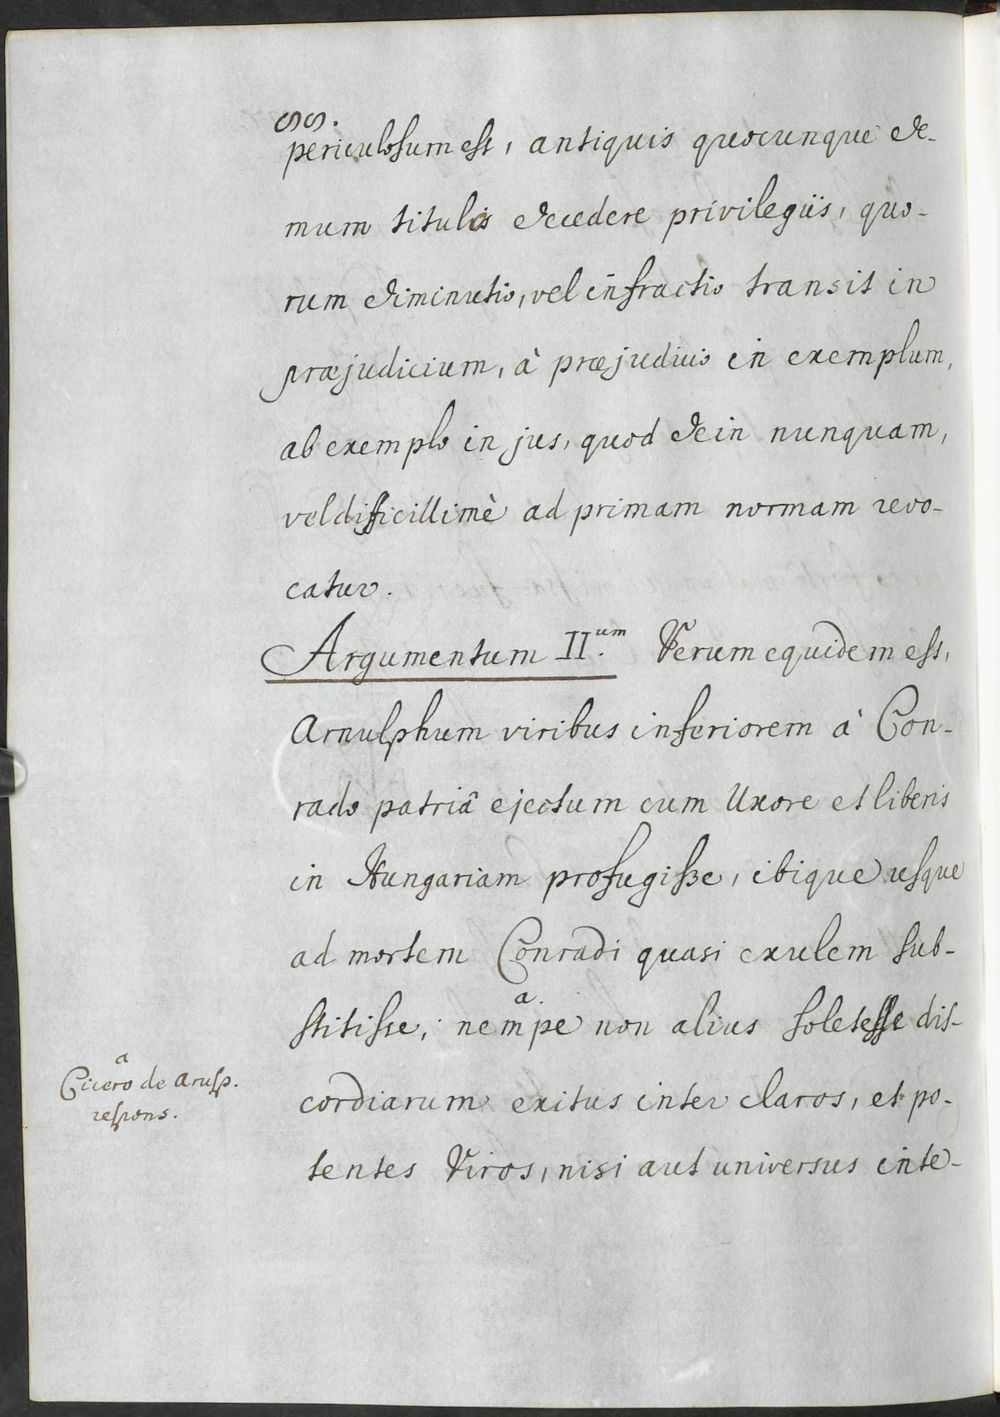 periculosum est, antiquis quocunque de-
mum titulis decedere privilegiis, quo-
rum diminutio, vel infractio transit in
præjudicium, à præjudicio in exemplum,
ab exemplo in jus, quod dein nunquam,
vel difficillimè ad primam normam revo-
catur.
Argumentum II.um Verum equidem est,
Arnulphum viribus inferiorem à Con-
rado patriâ ejectum cum Uxore et liberis
in Hungariam profugisse, ibique usque
ad mortem Conradi quasi exulem sub-
stitisse, nempe a non alius solet esse dis-
cordiarum exitus inter claros, et po-
tentes Viros, nisi aut universus inte-
a
Cicero de arusp.
respons.